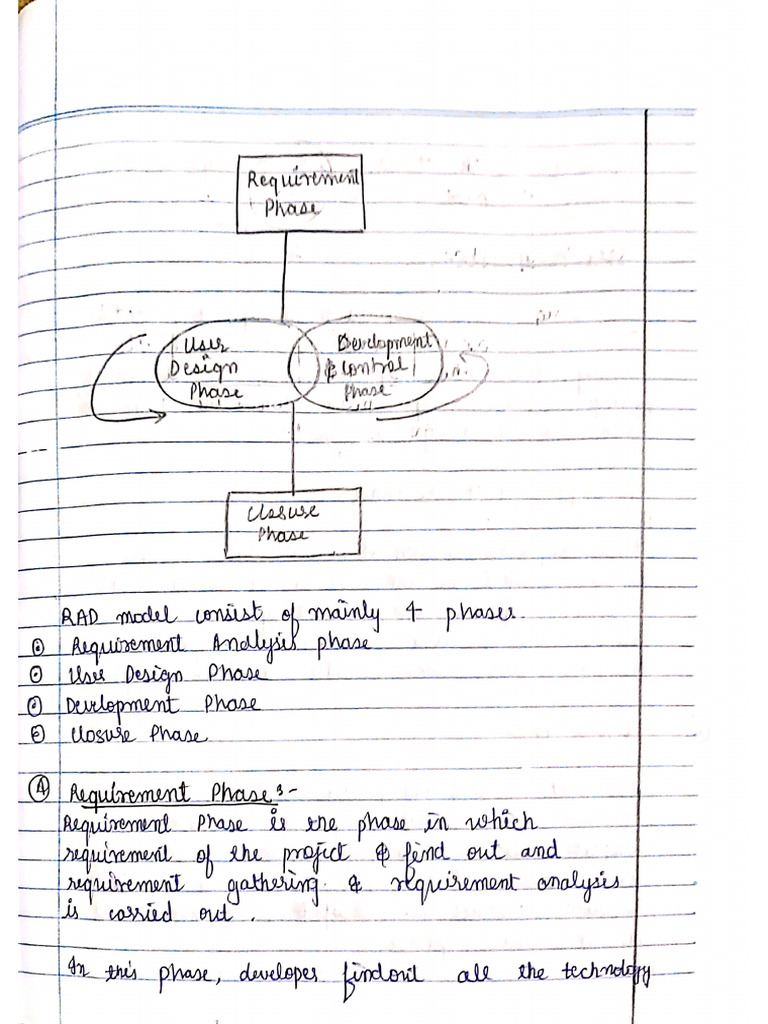 Requirement
Phase
User
Design
Phase
Development
& Control
Phase
Closure
Phase
RAD model consist of mainly 4 phases.
Requirement Analysis phase
User Design Phase
Development Phase
Closure Phase
(A) Requirement Phase :-
Requirement Phase is the phase in which
requirement of the project & find out and
requirement gathering & requirement analysis
is carried out.
In this phase, developes findout all the technology